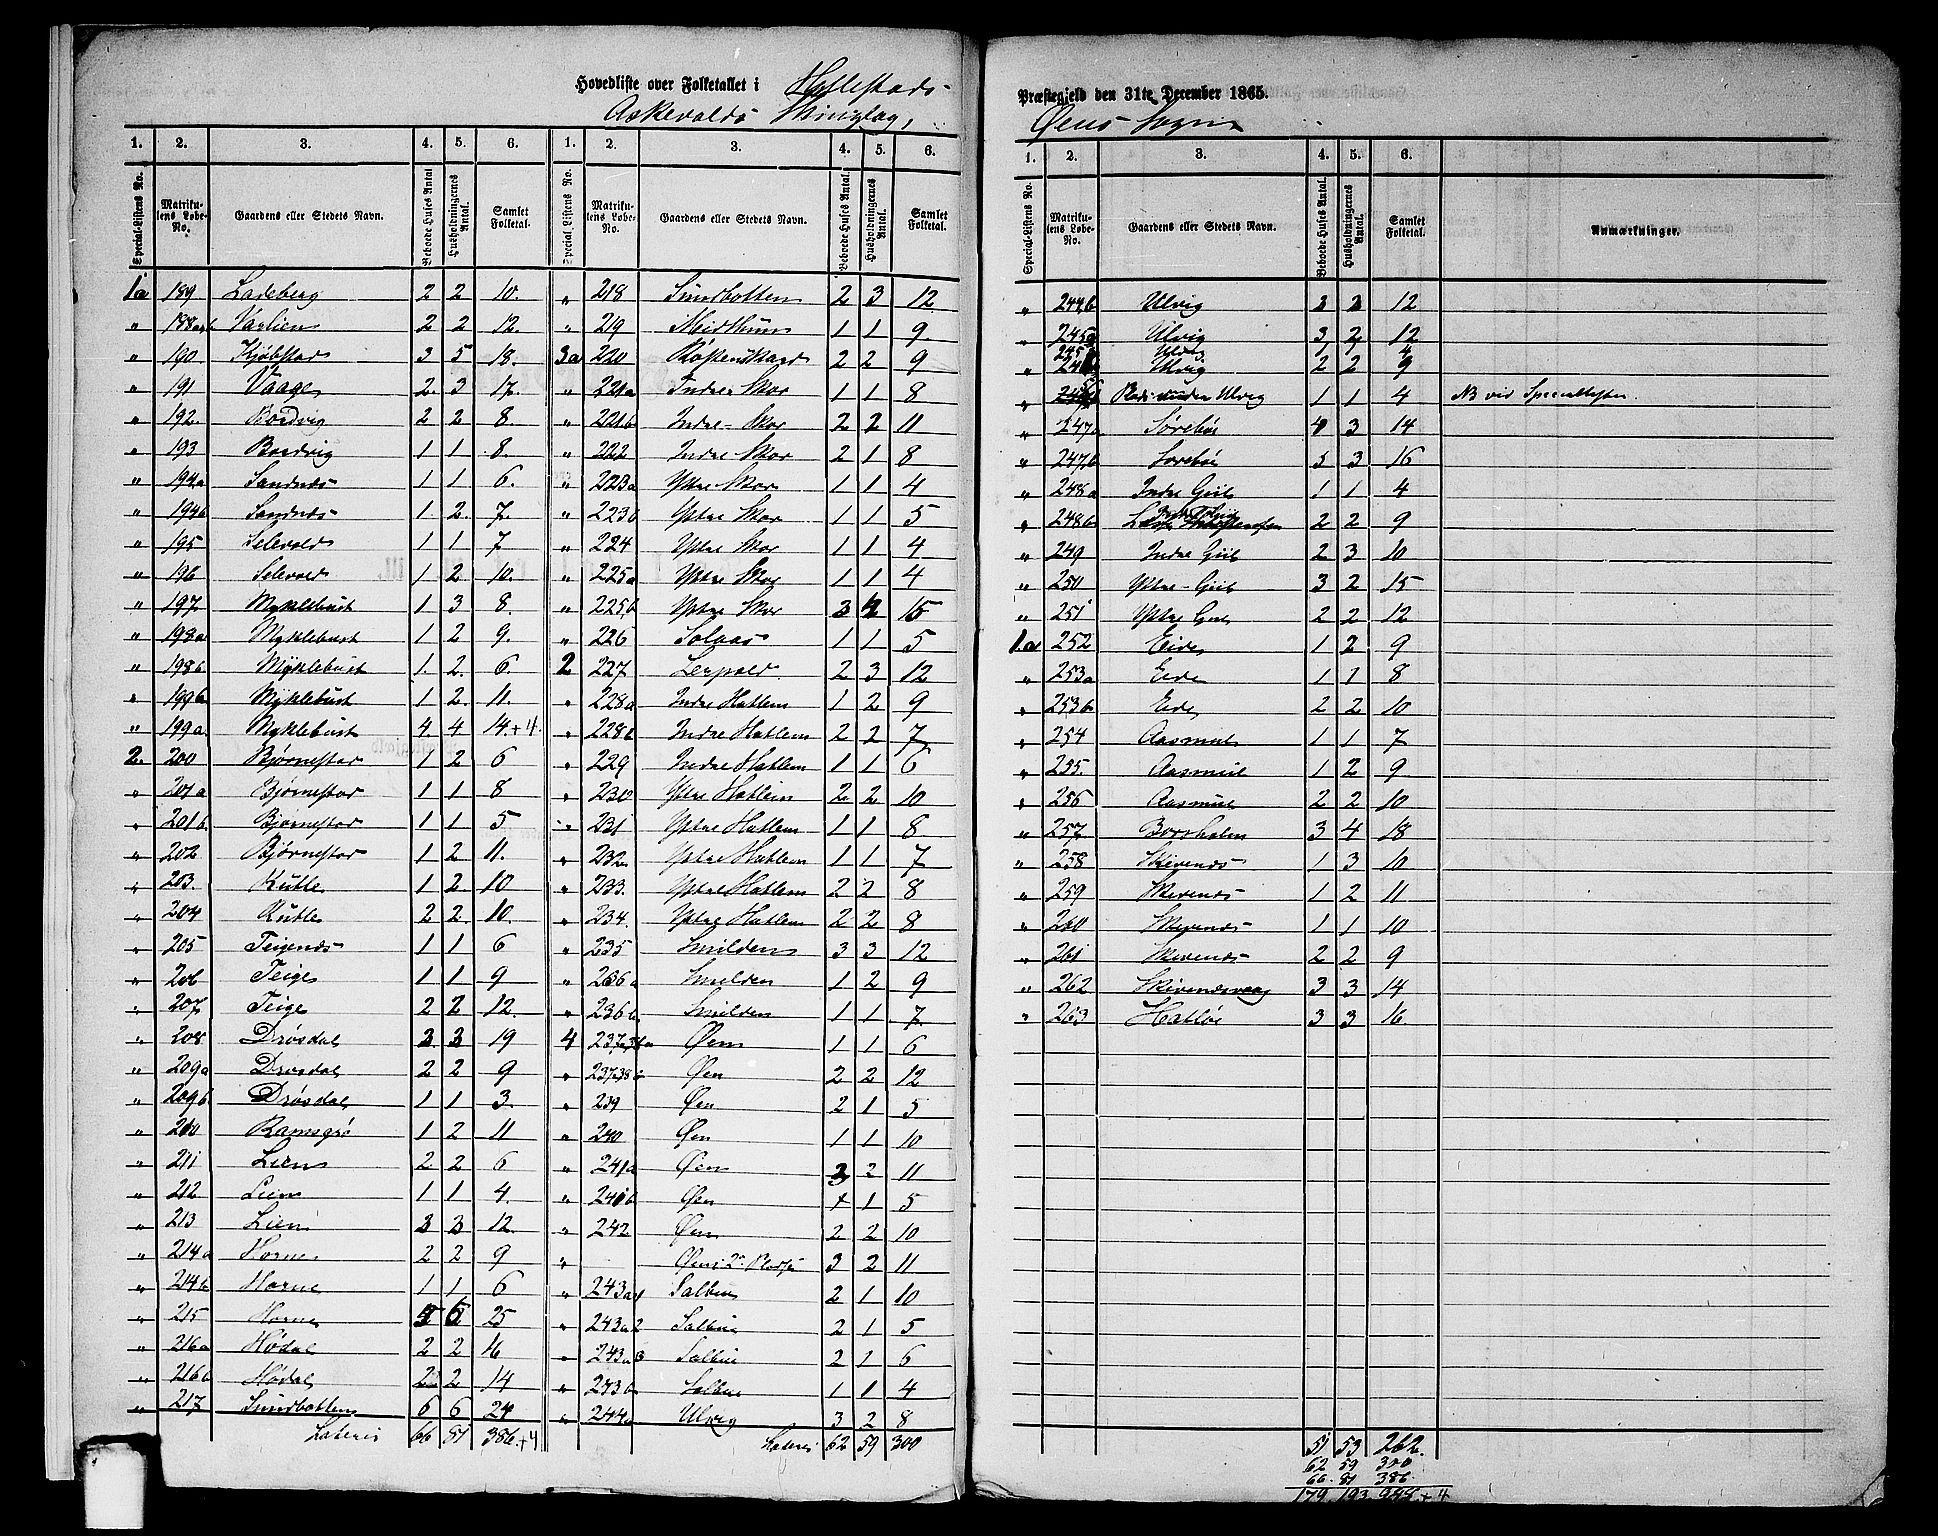 Hovedliste over Folketallet i Hyllestads Præstegjeld den 31te December 1865.
Askevolds Thinglag, Øens Sogn
1. 2. 3. 4. 5. 6. 1. 2. 3. 4. 5. 6.
Special-Listens No. Matrikulens Løbe-No. Gaardens eller Stedets Navn. Beboede Huses Antal Husholdningernes Antal. Samlet Folketal. Special Listens No. Matrikulens Løbe-No. Gaardens eller Stedets Navn. Beboede Huses Antal. Husholdningernes Antal. Samlet Folketal.
1a 189 Ladeberg 2 2 10.
" 188a+b Varlien 2 2 12.
" 190. Kjøbstad 3 5 18.
" 191 Vaage 2. 3 17.
" 192. Bordvig 2 2 8.
" 193 Bordvig 1 1 8.
" 194a Sandnæs 1 1 6.
" 194b Sandnæs 1 2. 7.
" 195 Selevold 1 1 7
" 196 Selevold 1 2 10.
" 197 Myklebust 1 3 8.
" 198a Myklebust 1 2 9.
" 198b Myklebust 1. 2. 6.
" 199b Myklebust 1 2. 11.
" 199a Myklebust 4 4 14.+4.
2. 200 Bjørnestad 1 2 6
" 201a Bjørnestad 1 1 8
" 201b Bjørnestad 1 1 5
" 202 Bjørnestad 1 2 11.
" 203. Rutle 1 2. 10
" 204 Rutle 2 2. 10.
" 205 Teigenæs 1 1 6
" 206 Teige 1 1 9
" 207 Teige 2 2 12.
" 208 Drøsdal 3 3 19
" 209a Drøsdal 2 2 9
" 209b Drøsdal 1 1 3.
" 210 Ramsgrø 1 2 11
" 211 Lien 2 2 6
" 212 Lien 1 1 4.
" 213 Lien 3 3 12.
" 214a Horne. 2 2 9
" 214b Horne 1 1 6
" 215 Horne 5 6 25
" 216a Hødal 2 2 16
" 216b Hødal 2 2 14
" 217 Sundbotten 6 6 24
Lateris 66 81 386.+4
" 218 Sundbotten 2 3 12.
" 219 Meidthun 1 1 9.
3a 220 2 2 9
" 221a Indre Skor 1 1 8
" 221b Indre-Skor 2 2 11
" 222 Indre Skor 2 1 8
" 223a Ytre Skor 1 1 4
" 223b Ytre Skor 1 1 5
" 224 Ytre Skor 1 1 4
" 225a Ytre Skor 1 1 4
" 225b Ytre Skor 3 4 15
" 226 Solaas 1 1 5
2 227 Lervold. 2 3 12
" 228a Indre Hatlem 1 2 9
" 228b Indre Hatlem 2 2 7
" 229 Indre Hatlem 1 1 6
" 230 Ytre Hatlem 2 2 10
" 231 Ytre Hatlem 1 1 8.
" 232. Ytre Hatlem 1 1 7
" 233. Ytre Hatlem 2 2 8
" 234. Ytre Hatlem 2 2 8
" 235 Smilden 3 3 12
" 236a Smilden 1 2 9
" 236b Smilden 1 1 7.
4 237,38a Øen 1 1 6
" 237,38b Øen 2 2 12
" 239 Øen 2 1 5
" 240 Øen 1 1 10
" 241a Øen 3 2 11
" 241b Øen 1 1 5
" 242 Øen 2 2 10
" Øen 2 Pladse 3 2 11
" 243a1 Salbue 2 1 10
" 243a2 Salbue 2 1 5
" 243a3 Salbue 2 1 6
" 243b Salbue 1 1 4
" 244a Ulvig 3 2 8
Lateris 62 59 300
1. 2. 3. 4. 5. 6.
Special-Listens No. Matrikulens Løbe-No. Gaardens eller Stedets Navn. Beboede Huses Antal. Husholdningernes Antal. Samlet Folketal. Anmærkninger.
" 244b Ulvig 3 2 12
" 245a Ulvig 3 2 12
245b Ulvig 1 1 4
" 246 Ulvig 2 2 9
" Plads under Ulvig 1 1 4 NB vid Speciallisten.
" 247a Sørebø 4 3 14
" 247b Sørebø 3 3 16
" 248a Indre Giil 1 1 4
" 248b 2 2 9
" 249 Indre Giil 2 3 10
" 250 Ytre-Giil 3 2 15
" 251 Ytre Giil 2 2 12
1a 252 Eide 1 2 9
" 253a Eide 1 1 8
" 253b Eide 2 2 10
" 254 Aasmul 1 1 7
" 255. Aasmul 1 2 9
" 256 Aasmul 2 2 10
" 257 Borsholm 3 4 18
" 258 Skivenæs 1 3 10
" 259 Skivenæs 1 2 11
" 260 Skivenæs 1 1 10
" 261 Skivenæs 2 2 9
" 262 Skivenæsvaag 3 3 14
" 263 Hatløi 3 3 16.
51 53 262.
62 59 300
66. 81 386.
179. 193 948.+4